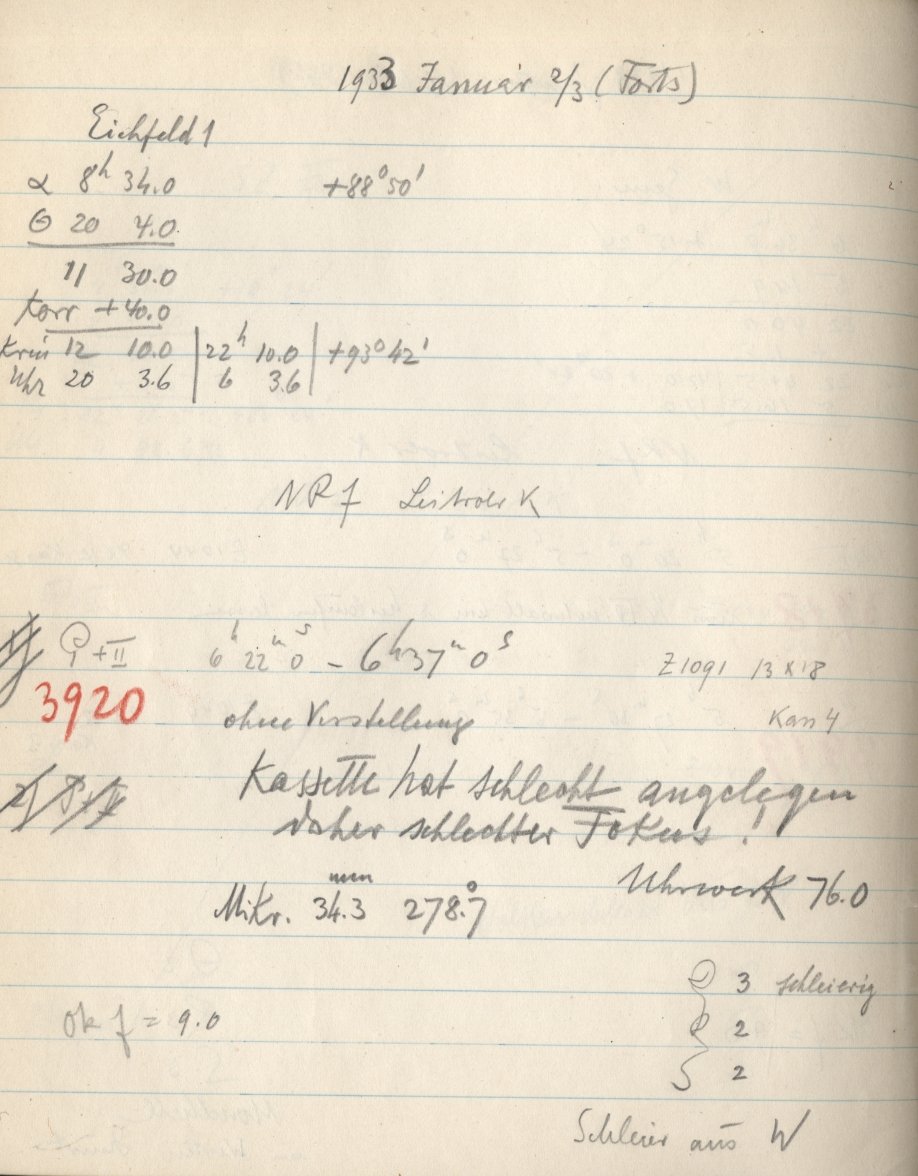 1933 Januar 2/3 (Forts)
Eichfeld 1
α 8h 34.0 +88° 50'
Θ 20 4.0
11 30.0
Korr +40.0
Krin 12 10.0 | 22h 10.0 | +93° 42'
Uhr 20 3.6 | 6 3.6 |
NRf Leitrohr K
+II 6h 22m 0s – 6h 37m 0s Z1091 13 x 18
3920
ohne Verstellung Kass 4
Kassette hat schlecht angelegen
daher schlechter Fokus!
Uhrwerk 76.0
Mikr. 34.3 mm 278.°7
3 schleierig
Ok f = 9.0 2
2
Schleier aus W